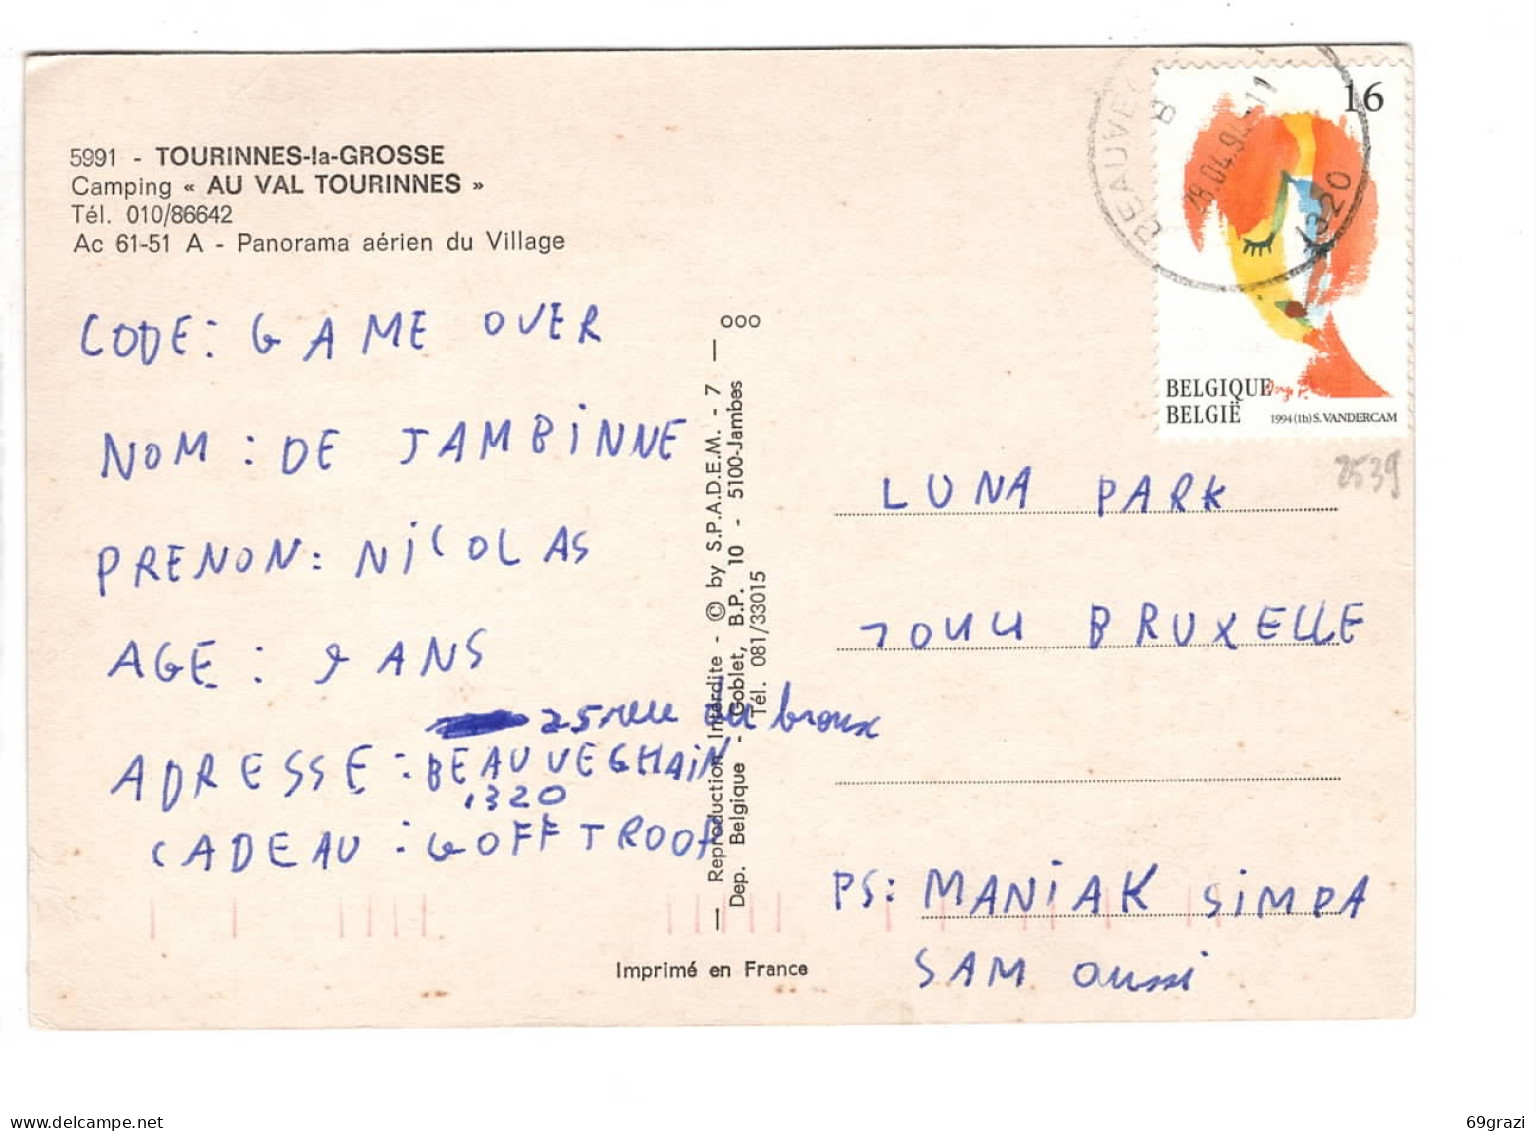 5991 - TOURINNES-la-GROSSE
Camping « AU VAL TOURINNES »
Tél. 010/86642
Ac 61-51 A - Panorama aérien du Village
CODE: GAME OVER
NOM : DE JAMBINNE
PRENON: NICOLAS
AGE : 9 ANS
25 rue du broux
ADRESSE : BEAUVEGHAIN
1320
CADEAU : GOFFTROOP
Reproduction Interdite - © by S.P.A.D.E.M. - 7 — ooo
Dep. Belgique - Goblet, B.P. 10 - 5100-Jambes
Tél. 081/33015
Imprimé en France
28.04.94-11
1320
B
16
BELGIQUE
BELGIË
1994 (1b) S. VANDERCAM
2539
LUNA PARK
1044 BRUXELLE
PS: MANIAK SIMPA
SAM aussi
69grazi